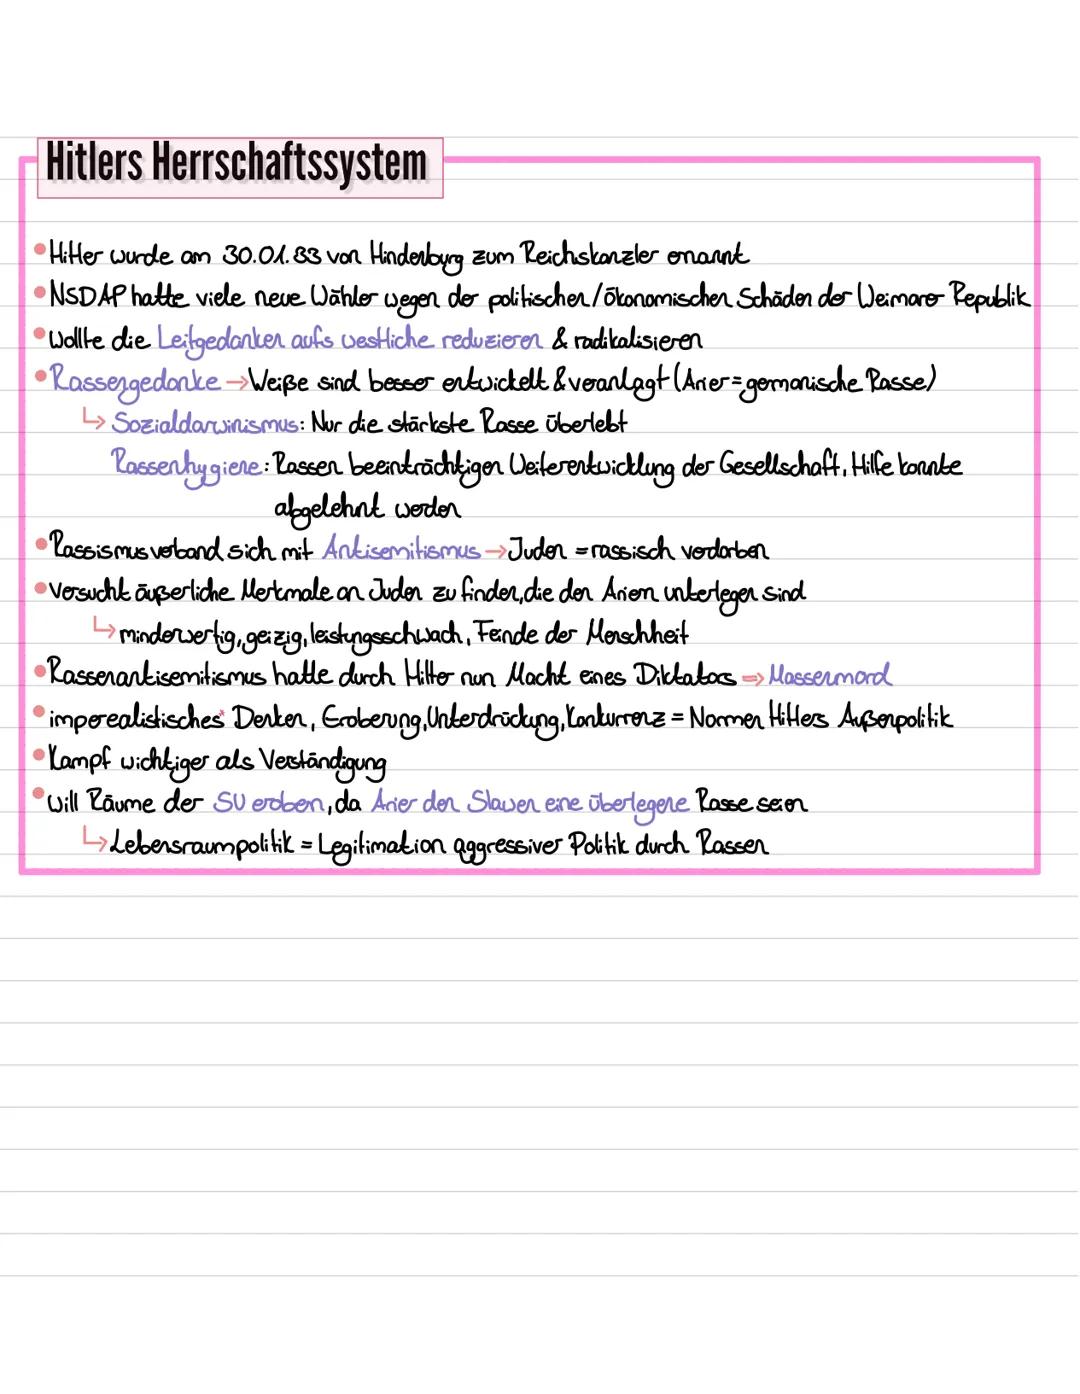 Hitlers Herrschaftssystem
• Hitler wurde am 30.01.33 von Hindenburg zum Reichskanzler ernannt
• NSDAP hatte viele neue Wähler wegen der politischen/ökonomischen Schäden der Weimarer Republik
• Wollte die Leitgedanken aufs westliche reduzieren & radikalisieren
• Rassengedanke → Weiße sind besser entwickelt & veranlagt (Arier = germanische Rasse)
↳ Sozialdarwinismus: Nur die stärkste Rasse überlebt
Rassenhygiene: Rassen beeinträchtigen Weiterentwicklung der Gesellschaft, Hilfe konnte
abgelehnt werden
• Rassismus verband sich mit Antisemitismus → Juden = rassisch verdorben
• Versucht äußerliche Merkmale an Juden zu finden, die den Ariern unterlegen sind
↳ minderwertig, geizig, leistungsschwach, Feinde der Menschheit
• Rassenantisemitismus hatte durch Hitler nun Macht eines Diktators ⇒ Massenmord
• imperealistisches* Denken, Eroberung, Unterdrückung, Konkurrenz = Normen Hitlers Außenpolitik
• Kampf wichtiger als Verständigung
• Will Räume der SU erobern, da Arier den Slawen eine überlegene Rasse seien
↳ Lebensraumpolitik = Legitimation aggressiver Politik durch Rassen